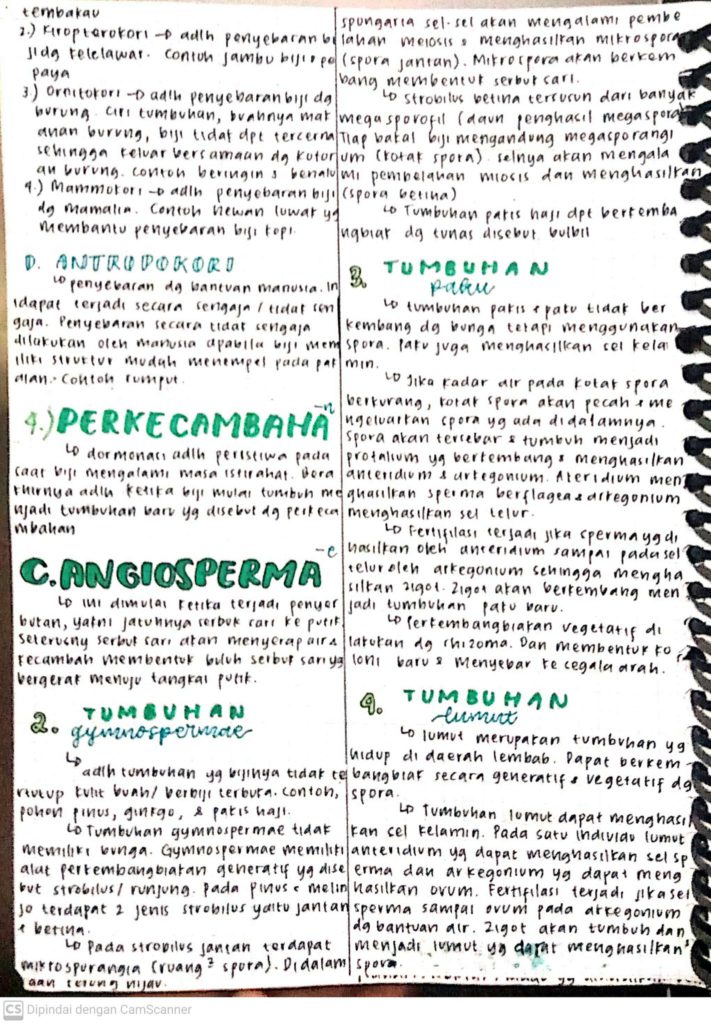 tembakau
2.) Kiropterokori → adlh penyebaran bi
ji dg kelelawar. Contoh jambu biji & pe
paya
3.) Ornitokori → adlh penyebaran biji dg
burung. Ciri tumbuhan, buahnya mak
anan burung, biji tidat dpt tercerna
sehingga keluar bersamaan dg kotor
an burung. Contoh beringin & benalu
4.) Mammokori → adlh penyebaran biji
dg mamalia. Contoh hewan luwak yg
membantu penyebaran biji kopi.
D. ANTROPOKORI
↳ penyebaran dg bantuan manusia. In
i dapat terjadi secara sengaja / tidat sen
gaja. Penyebaran secara tidat sengaja
dilakukan oleh manusia apabila biji mem
iliki struktur mudah menempel pada pak
aian. Contoh rumput.
4.) PERKECAMBAHA-n
↳ dormonasi adlh peristiwa pada
saat biji mengalami masa istirahat. Bera
khirnya adlh ketika biji mulai tumbuh me
njadi tumbuhan baru yg disebut dg perkeca
mbahan
C. ANGIOSPERMA-e
↳ ini dimulai ketika terjadi penyer
butan, yakni jatuhnya serbuk sari ke putik
Seterusny serbuk sari akan menyerap air &
kecambah membentuk buluh serbuk sari yg
bergerak menuju tangkai putik.
2. TUMBUHAN
gymnospermae
↳
adlh tumbuhan yg bijinya tidak te
rtutup kulit buah/ berbiji terbuka. Contoh,
pohon pinus, ginkgo, & pakis haji.
↳ Tumbuhan gymnospermae tidak
memiliki bunga. Gymnospermae memiliki
alat perkembangbiakan generatif yg dise
but strobilus/ runjung. Pada pinus & melin
jo terdapat 2 jenis strobilus yaitu jantan
& betina.
↳ Pada strobilus jantan terdapat
mikrospurangia (ruang² spora). Di dalam
spungaria sel-sel akan mengalami pembe
lahan meiosis & menghasilkan mikrospora
(spora jantan). Mikrospora akan berkem
bang membentuk serbuk sari.
↳ Strobilus betina tersusun dari banyak
megasporofil (daun penghasil megaspora)
Tiap bakal biji mengandung megasporangi
um (kotak spora). selnya akan mengala
mi pembelahan miosis dan menghasilkan
(spora betina)
↳ Tumbuhan pakis haji dpt berkemba
ngbiak dg tunas disebut bulbil
3. TUMBUHAN
paku
↳ tumbuhan pakis & paku tidak ber
kembang dg bunga tetapi menggunakan
spora. Paku juga menghasilkan sel kela
min.
↳ Jika kadar air pada kotak spora
berkurang, kotak spora akan pecah & me
ngeluarkan spora yg ada didalamnya.
Spora akan tersebar & tumbuh menjadi
protalium yg berkembang & menghasilkan
anteridium & arkegonium. Ateridium men
ghasilkan sperma berflagea & arkegonium
menghasilkan sel telur.
↳ Fertifilasi terjadi jika sperma yg di
hasilkan oleh anteridium sampai pada sel
telur oleh arkegonium sehingga mengha
silkan zigot. Zigot akan berkembang men
jadi tumbuhan paku baru.
↳ Perkembangbiakan vegetatif di
lakukan dg rhizoma. Dan membentuk ko
loni baru & menyebar ke cegala arah.
4. TUMBUHAN
lumut
↳ lumut merupakan tumbuhan yg
hidup di daerah lembab. Dapat berkem-
bangbiak secara generatif & vegetatif dg
spora.
↳ Tumbuhan lumut dapat menghasil
kan sel kelamin. Pada satu individu lumut
anteridium yg dapat menghasilkan sel sp
erma dan arkegonium yg dapat meng
hasilkan ovum. Fertifilasi terjadi jika sel
sperma sampai ovum pada arkegonium
dg bantuan air. Zigot akan tumbuh dan
menjadi lumut yg dapat menghasilkan
spora.
CS Dipindai dengan CamScanner